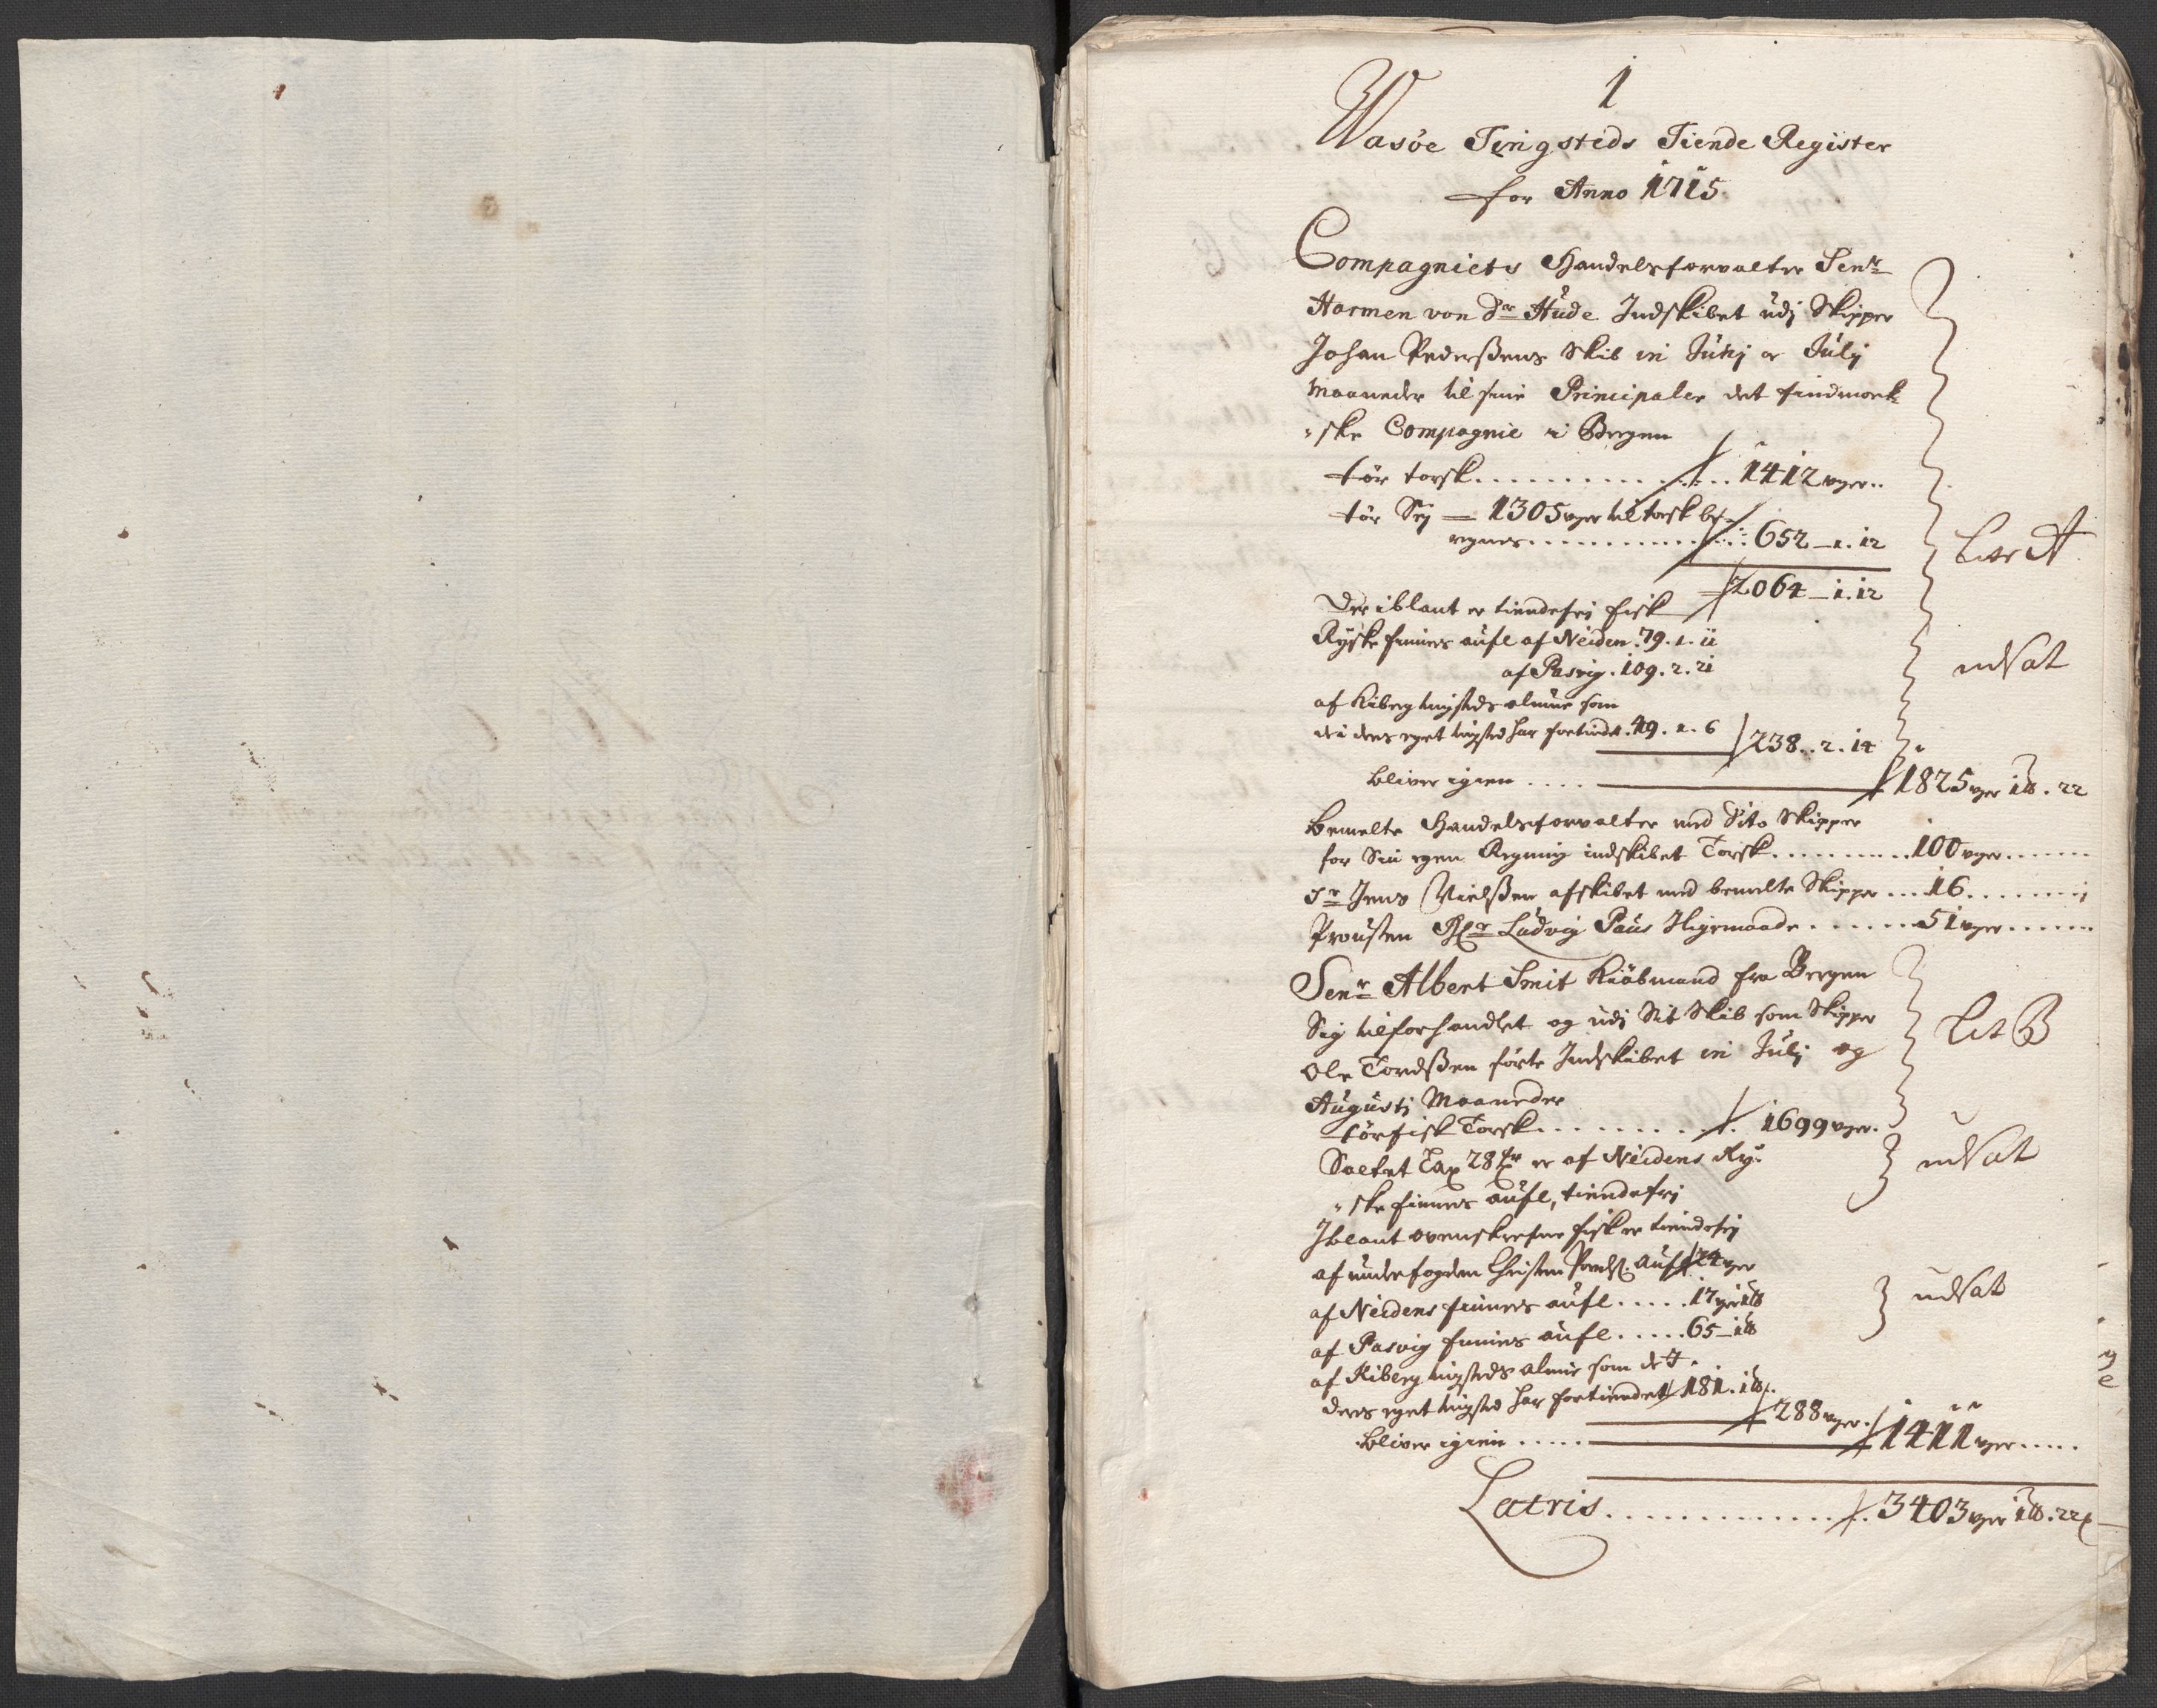 1
Wasöe Tingsteds Tiende Register
for Anno 1715
Compagniets Handelsforvalter Senr
Harmen von dr Hude Indskibet udj Skipper
Johan Pederßens Skib in Junj og Julij
Maaneder til sine Principaler det findmark-
ske Compagnie i Bergen
tör torsk .............. 1412 voger ..
tör Sej — 1305 voger til torsk be-
regnes .............. 652 – 1. 12
2064 – 1. 12
Der iblant er tiendefrj fisk
Ryske finners aufl af Neiden . 79. 1. 11
af Pasvig . 109. 2. 21
af Kiberg tingsteds almue som
de i deres eget tingsted har fortiendet . 49. 1. 6
238 .. 2. 14
Litr A
udsat
bliver igien .... 1825 voger 1 lb. 22
bemelte Handelsforvalter med dito Skipper
for Sin egen Regning indskibet Torsk .......... 100 voger ......
Sr Jens Nielßen afskibet med bemelte Skipper ... 16 ........
Prousten Hr Ludvig Paus ligemaade ...... 51 voger ......
Senr Albert Smit Kiöbmand fra Bergen
Sig tilforhandlet og udj Sit Skib som Skipper
Ole Tordßen förte Indskibet in Julj og
Augustj Maaneder
Lit B
törfisk Torsk .......... 1699 voger.
Saltet Lax 28 tr er af Neidens Ry-
ske finners aufl, tiendefrj
udsat
Iblant ovenskrefne fisk er tiendefrj
af underfogden Christen Aufl 24 voger
af Neidens finners aufl ..... 17 voger 1 lb
af Pasvig finners aufl ..... 65 – 1 lb
af Kiberg tingsteds almue som de i
deres eget tingsted har fortiendet 181. 1 lb.
288 voger.
udsat
bliver igien ..... 1411 voger .....
Latris .............. 3403 voger 1 lb. 22